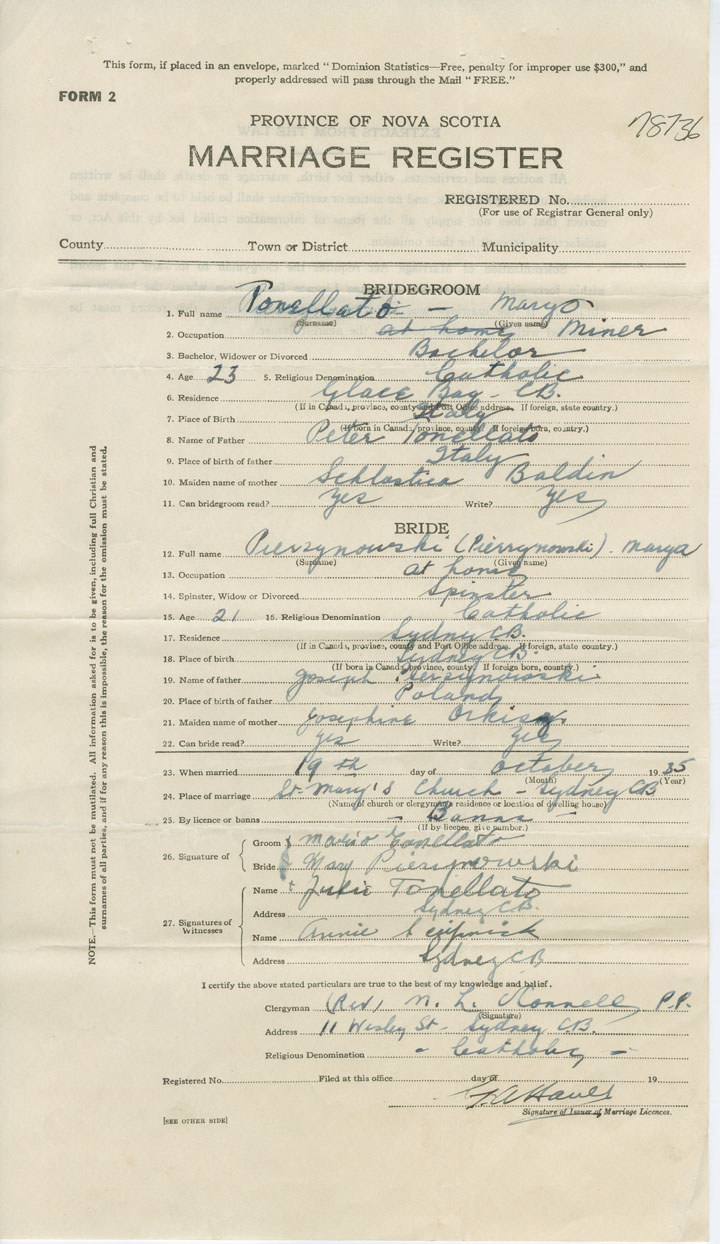 This form, if placed in an envelope, marked "Dominion Statistics—Free, penalty for improper use $300," and
properly addressed will pass through the Mail "FREE."
FORM 2
PROVINCE OF NOVA SCOTIA
78736
MARRIAGE REGISTER
REGISTERED No.
(For use of Registrar General only)
County Town or District Municipality
BRIDEGROOM
1. Full name Tonellato - Maryo
(Surname) (Given name)
2. Occupation at home Miner
3. Bachelor, Widower or Divorced Bachelor
4. Age 23 5. Religious Denomination Catholic
6. Residence Glace Bay - CB.
(If in Canada, province, county and Post Office address. If foreign, state country.)
7. Place of Birth Italy
(If born in Canada, province, county. If foreign born, country.)
8. Name of Father Peter Tonellato
9. Place of birth of father Italy
10. Maiden name of mother Schlastica Baldin
11. Can bridegroom read? yes Write? yes
BRIDE
12. Full name Pierzynowski (Pierrynowski). Marya
(Surname) (Given name)
13. Occupation at home
14. Spinster, Widow or Divorced Spinster
15. Age 21 16. Religious Denomination Catholic
17. Residence Sydney CB.
(If in Canada, province, county and Post Office address. If foreign, state country.)
18. Place of birth Sydney CB.
(If born in Canada, province, county. If foreign born, country.)
19. Name of father Joseph Pierzynowski
20. Place of birth of father Poland
21. Maiden name of mother Josephine
22. Can bride read? yes Write? yes
23. When married 19th day of October 1935
(Month) (Year)
24. Place of marriage St. Mary's Church - Sydney CB
(Name of church or clergyman's residence or location of dwelling house)
25. By licence or banns - Banns -
(If by licence, give number.)
26. Signature of
Groom Mario Tonellato
Bride Mary Pierzynowski
27. Signatures of Witnesses
Name Julie Tonellato
Address Sydney CB.
Name Annie
Address Sydney CB
I certify the above stated particulars are true to the best of my knowledge and belief.
Clergyman (Rev) M. L. P.P.
(Signature)
Address 11 Wesley St - Sydney CB.
Religious Denomination - Catholic -
Registered No. Filed at this office day of 19
Signature of Issuer of Marriage Licences.
[SEE OTHER SIDE]
NOTE.—This form must not be mutilated. All information asked for is to be given, including full Christian and
surnames of all parties, and if for any reason this is impossible, the reason for the omission must be stated.